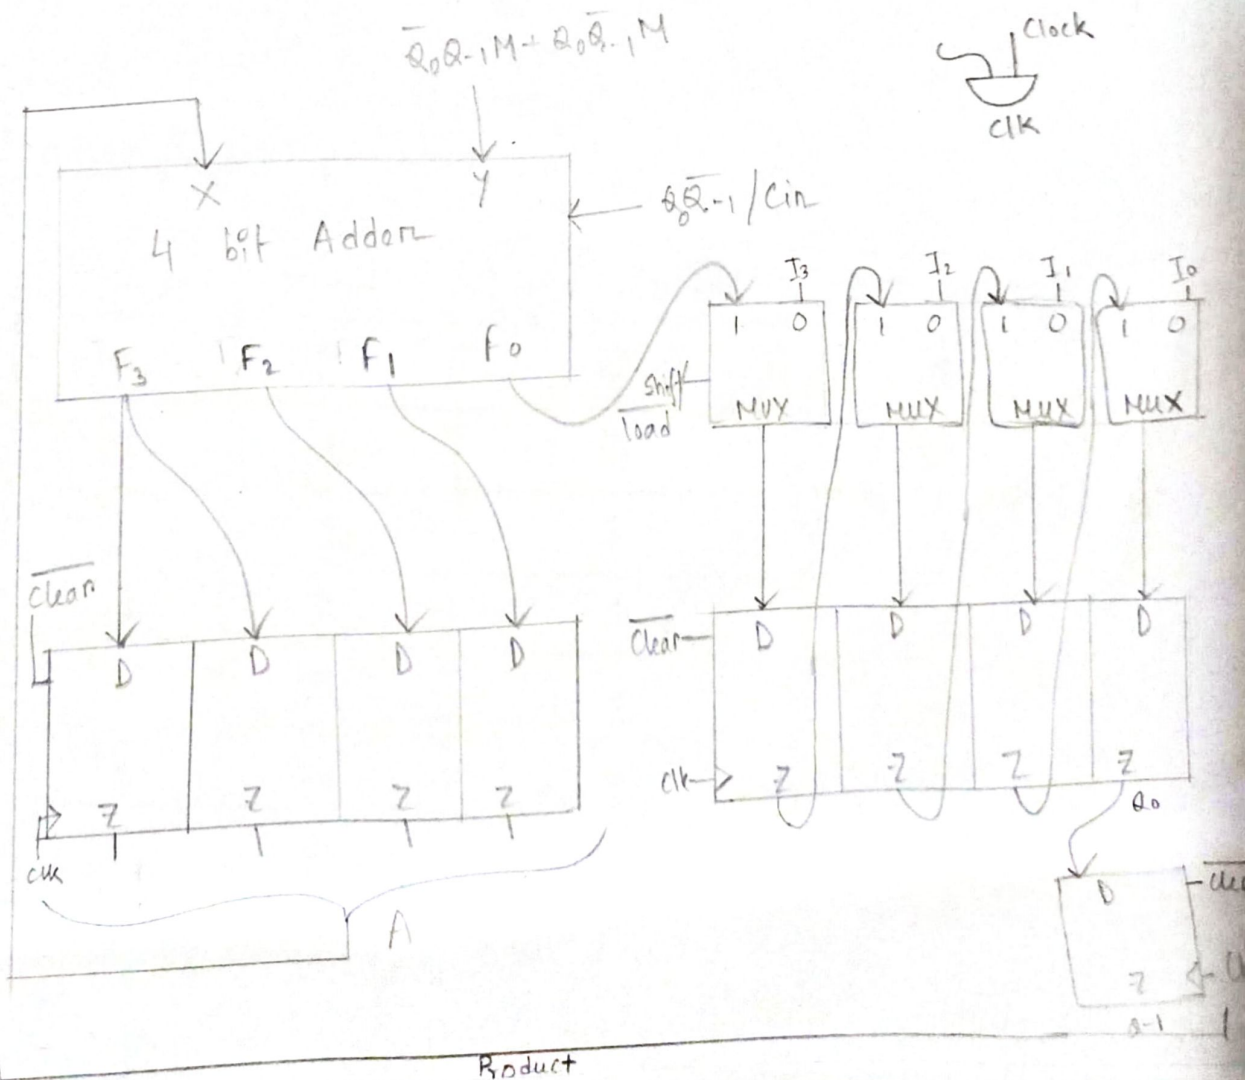 Q̅₀Q₋₁M + Q₀Q̅₋₁M
Clock
Clk
X Y
4 bit Adder
Q₀Q̅₋₁/Cin
F₃ F₂ F₁ F₀
I₃ I₂ I₁ I₀
1 0 1 0 1 0 1 0
Shift
l̅o̅a̅d̅
MUX MUX MUX MUX
C̅l̅e̅a̅r̅
C̅l̅e̅a̅r̅
D D D D
D D D D
Z Z Z Z
Clk
Clk
Z Z Z Z
Q₀
A
D
Z
Q-1
Product